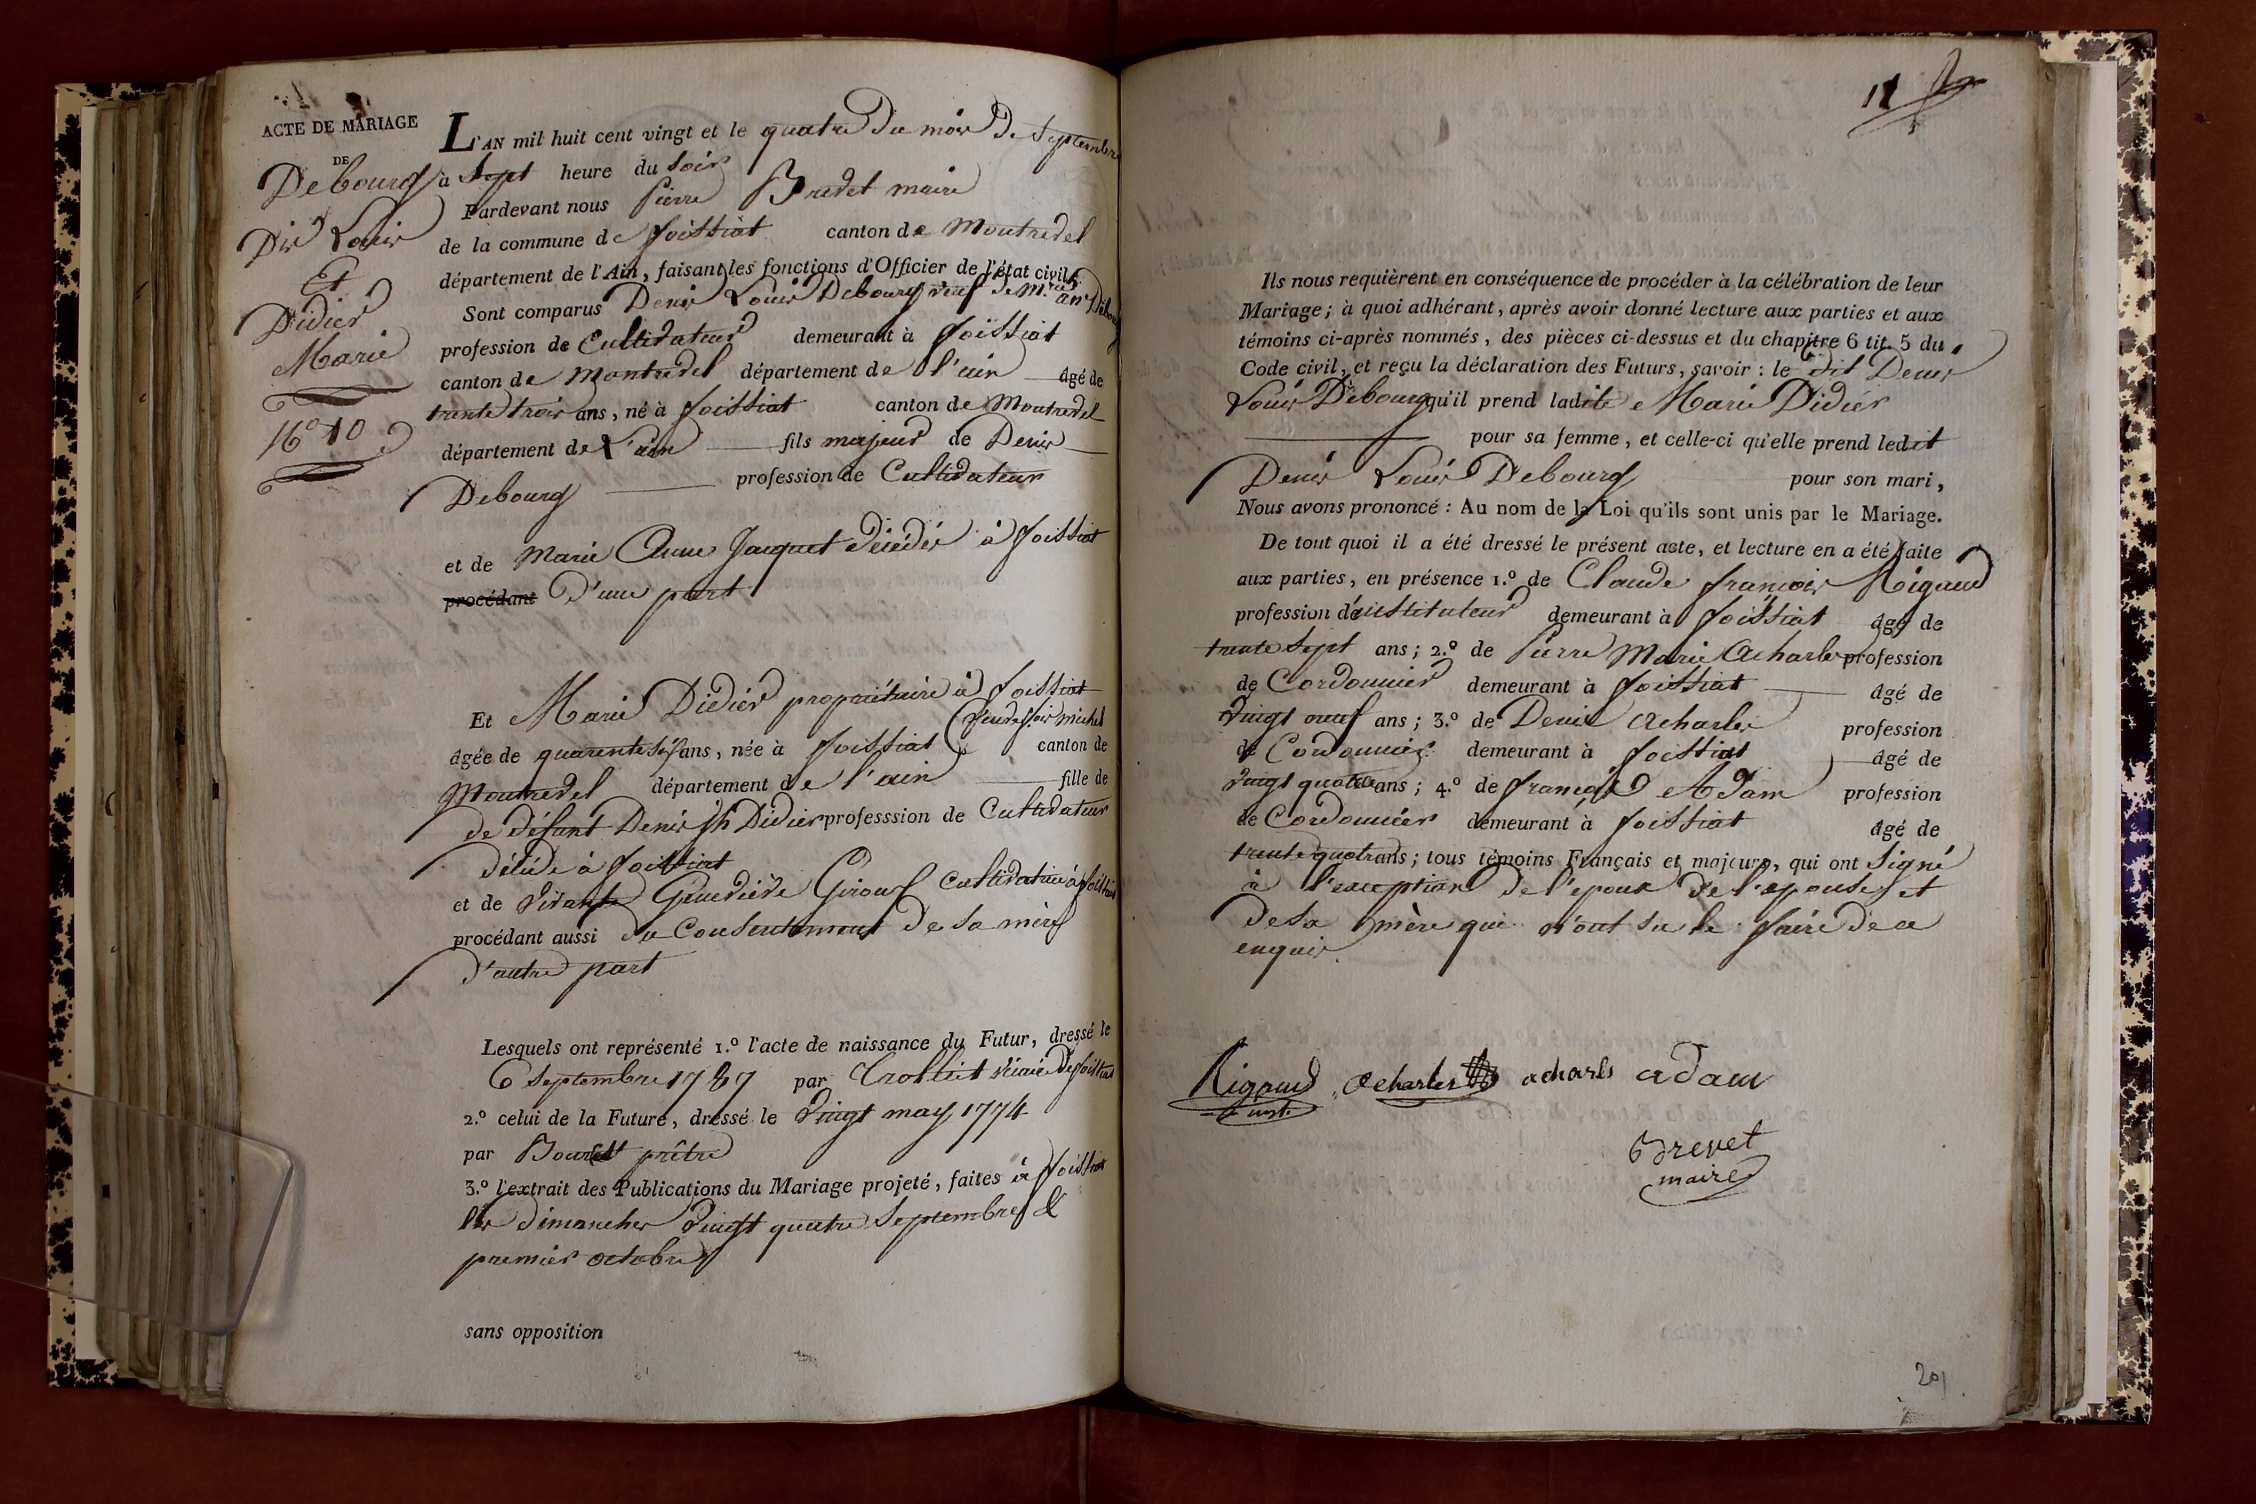 ACTE DE MARIAGE
DE
Debourg
Dis Louis
Et
Didier
Marie
L'AN mil huit cent vingt et le quatre du mois de Septembre
a Sept heure du Soir
Pardevant nous Pierre Brevet maire
de la commune de foissiat canton de Montrevel
département de l'Ain, faisant les fonctions d'Officier de l'état civil,
Sont comparus Denis Louis Debourg veuf de M.rie anne
profession de Cultivateur demeurant à foissiat
canton de Montrevel département de l'ain âgé de
trente trois ans, né à foissiat canton de Montrevel
département de L'ain fils majeur de Denis
Debourg profession de Cultivateur
et de Marie Anne Jacquet décédés à foissiat
procédant D'une part
Et Marie Didier propriétaire à foissiat
(veuve michel
âgée de quarente six ans, née à foissiat canton de
Montrevel département de l'ain fille de
de défunt Denis Jh Didier professsion de Cultivateur
décédé à foissiat
et de vivante Genevieve Giroux cultivatrice à foissiat
procédant aussi du Consentement de sa mère
d'autre part
Lesquels ont représenté 1.º l'acte de naissance du Futur, dressé le
6 Septembre 1787 par Trolliet vicaire de foissiat
2.º celui de la Future, dressé le vingt may 1774
par prêtre
3.º l'extrait des Publications du Mariage projeté, faites à foissiat
les dimanches vingt quatre Septembre &
premier octobre
sans opposition
Ils nous requièrent en conséquence de procéder à la célébration de leur
Mariage; à quoi adhérant, après avoir donné lecture aux parties et aux
témoins ci-après nommés, des pièces ci-dessus et du chapitre 6 tit. 5 du
Code civil, et reçu la déclaration des Futurs, savoir : le dit Denis
Louis Debourg qu'il prend ladite Marie Didier
pour sa femme, et celle-ci qu'elle prend ledit
Denis Louis Debourg pour son mari,
Nous avons prononcé : Au nom de la Loi qu'ils sont unis par le Mariage.
De tout quoi il a été dressé le présent acte, et lecture en a été faite
aux parties, en présence 1.º de Claude françois Rigaud
profession d'instituteur demeurant à foissiat âgé de
trente sept ans; 2.º de Pierre Marie Acharles profession
de Cordonnier demeurant à foissiat âgé de
vingt neuf ans; 3.º de Denis Acharles profession
de Cordonnier demeurant à foissiat âgé de
vingt quatre ans; 4.º de françois Adam profession
de Cordonnier demeurant à foissiat âgé de
trente quatre ans; tous témoins Français et majeurs, qui ont Signé
à l'exception de l'epoux de l'epouse et
de sa mère qui n'ont su le faire de ce
enquis.
Rigaud acharles acharles adam
inst.
Brevet
maire
201